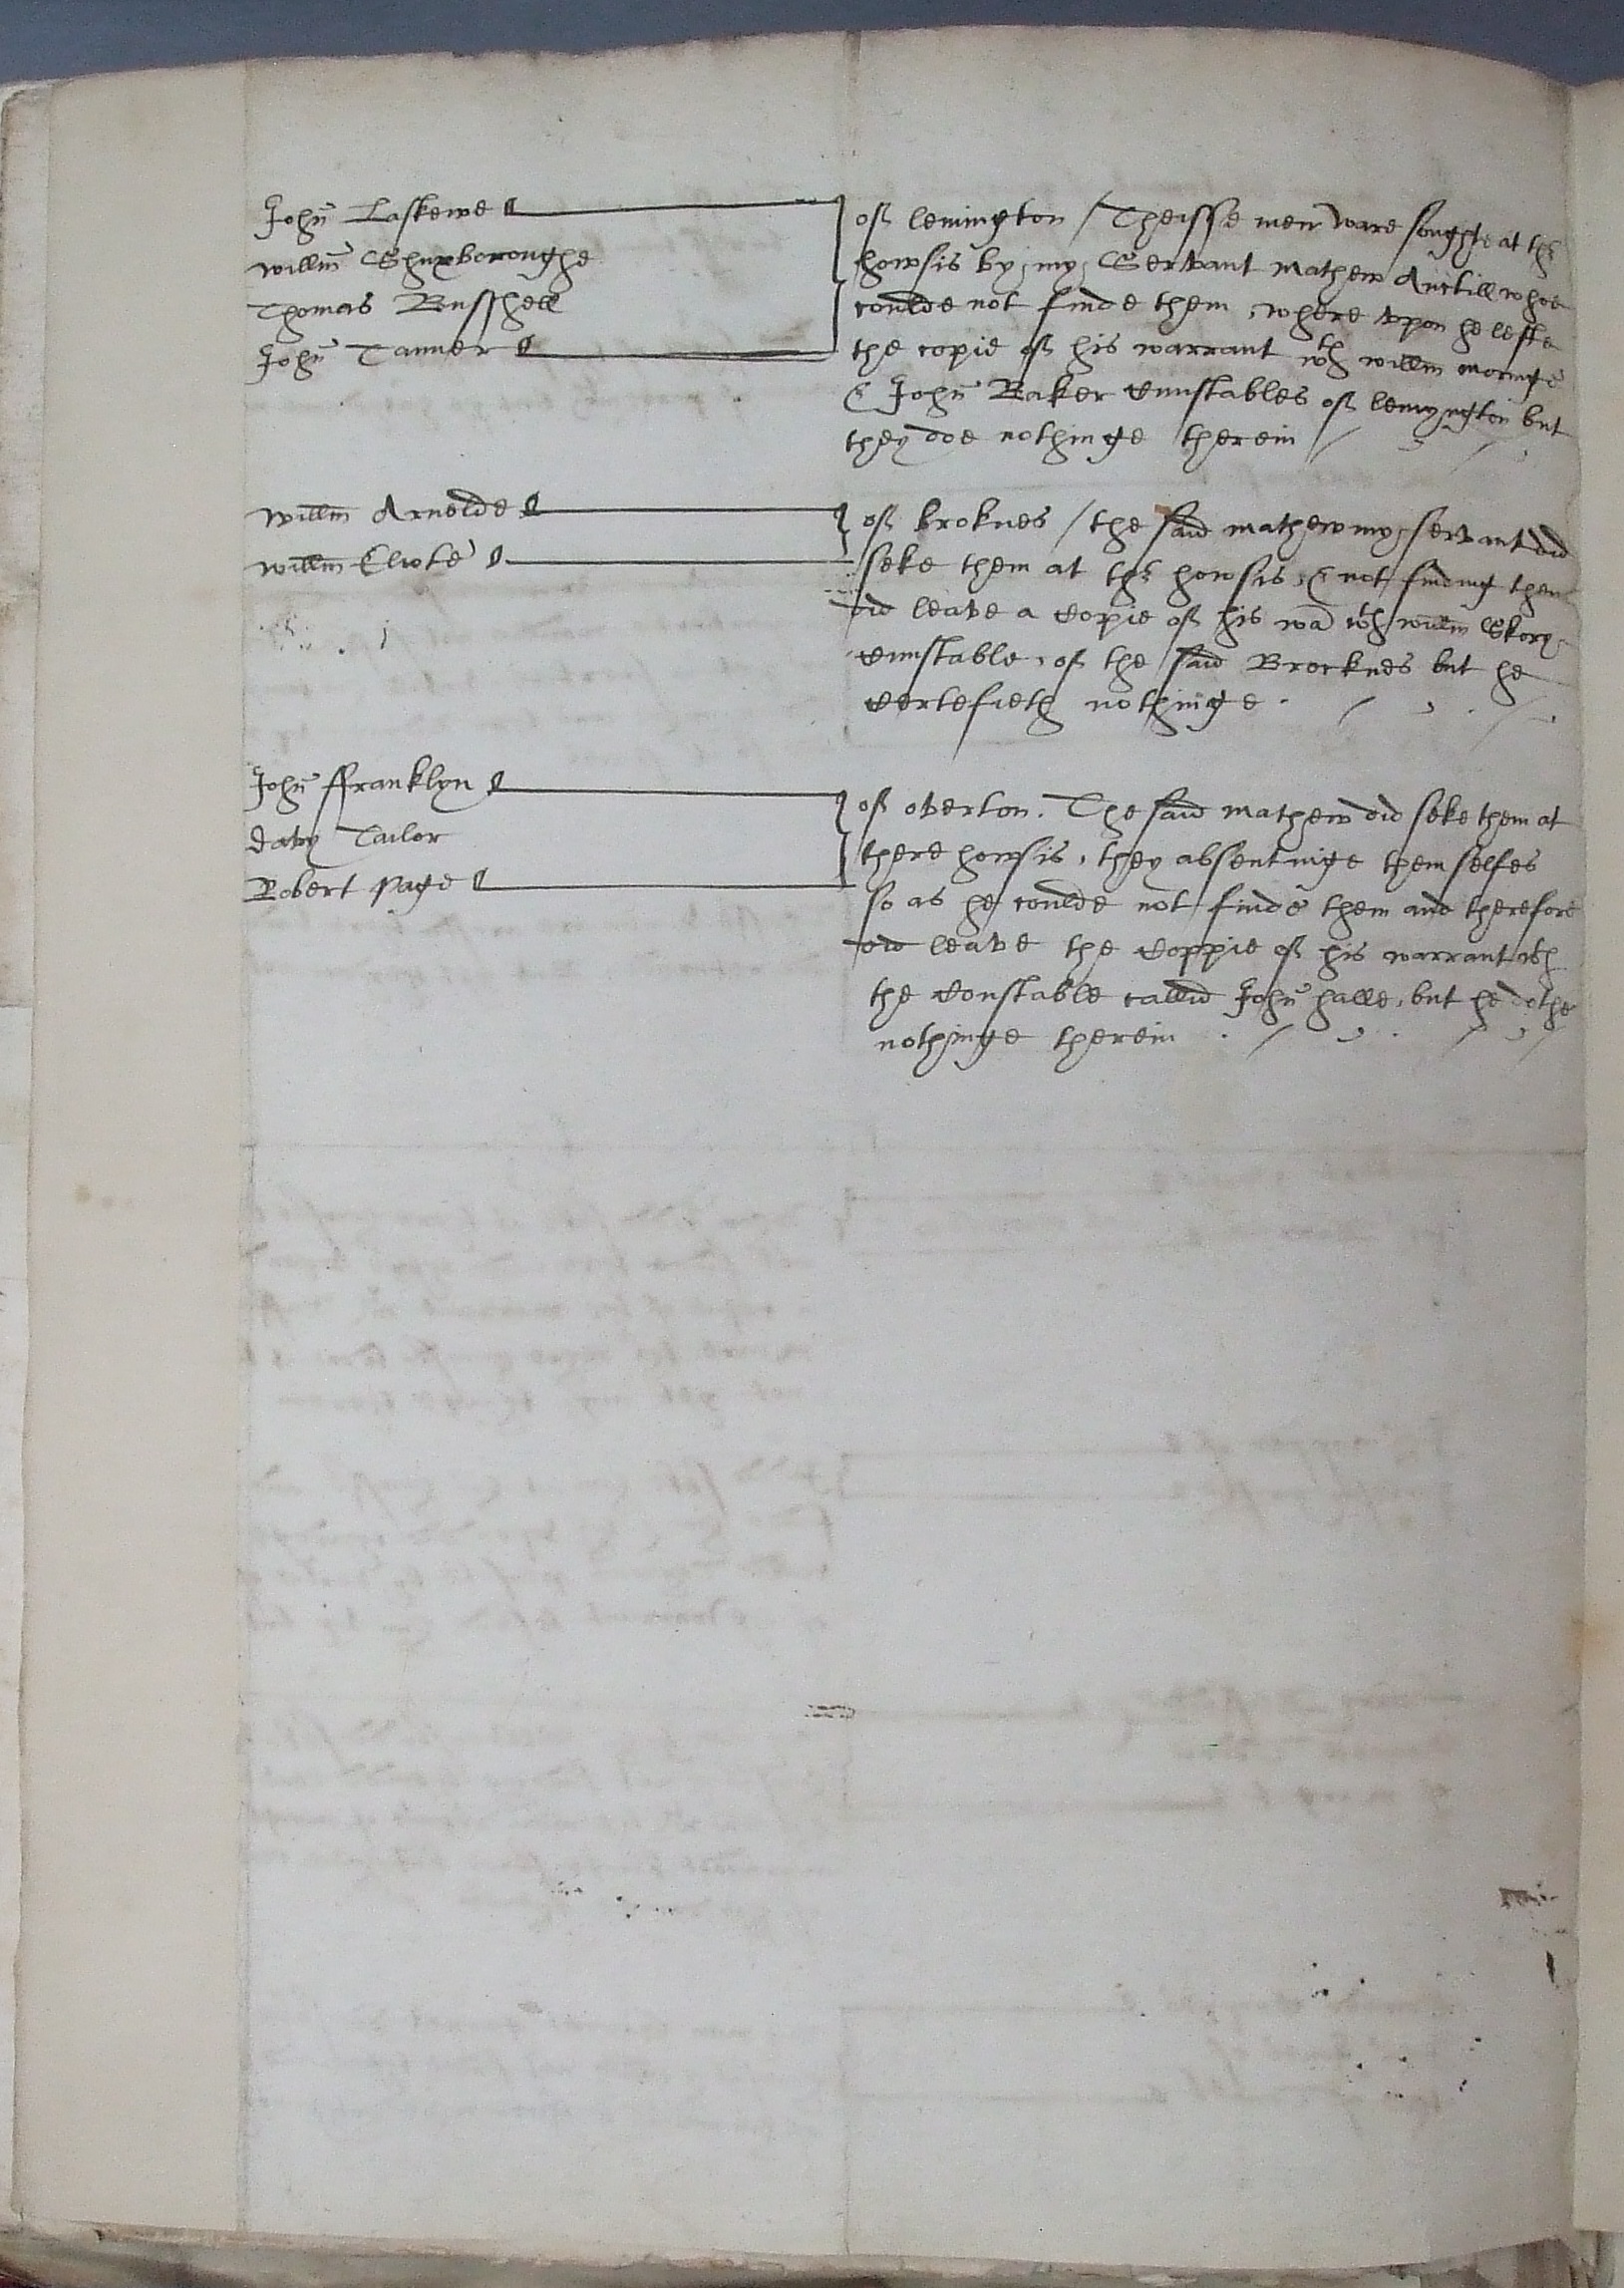 John Laskewe
willm Shuxboroughe
Thomas Busshell
John Tanner
of lemington / Theisse men ware soughte at ther
howsis by my Servant mathew Anctill whoe
coulde not finde them, where vpon he lefte
the copie of his warrant wth willm moringe
& John Baker Cunstables of lemyngton but
they doe nothinge therein
willm Arnolde
willm Eliote
of broknes / the said mathew my servant did
seke them at ther howsis, & not finding them
did leave a Copie of his wa wth willm Skory
Cunstable, of the said Brocknes but he
Certefieth nothinge.
John ffranklyn
davy Tailor
Robert page
of overton. The said mathew did seke them at
there howsis, they absentinge themselfes
so as he coulde not finde them and therefore
did leave the Coppie of his warrant wth
the Constable callid John halle, but he dothe
nothinge therein